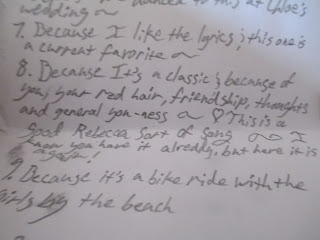 we danced to this at Chloe's
wedding ~
7. Because I like the lyrics; this one is
a current favorite ~
8. Because It's a classic; because of
you, your red hair, friendship, thoughts
and general you-ness ~ ♡ This is a
good Rebecca sort of song ~ I
know you have it already, but here it is
again!
9. Because it's a bike ride with the
girls by the beach